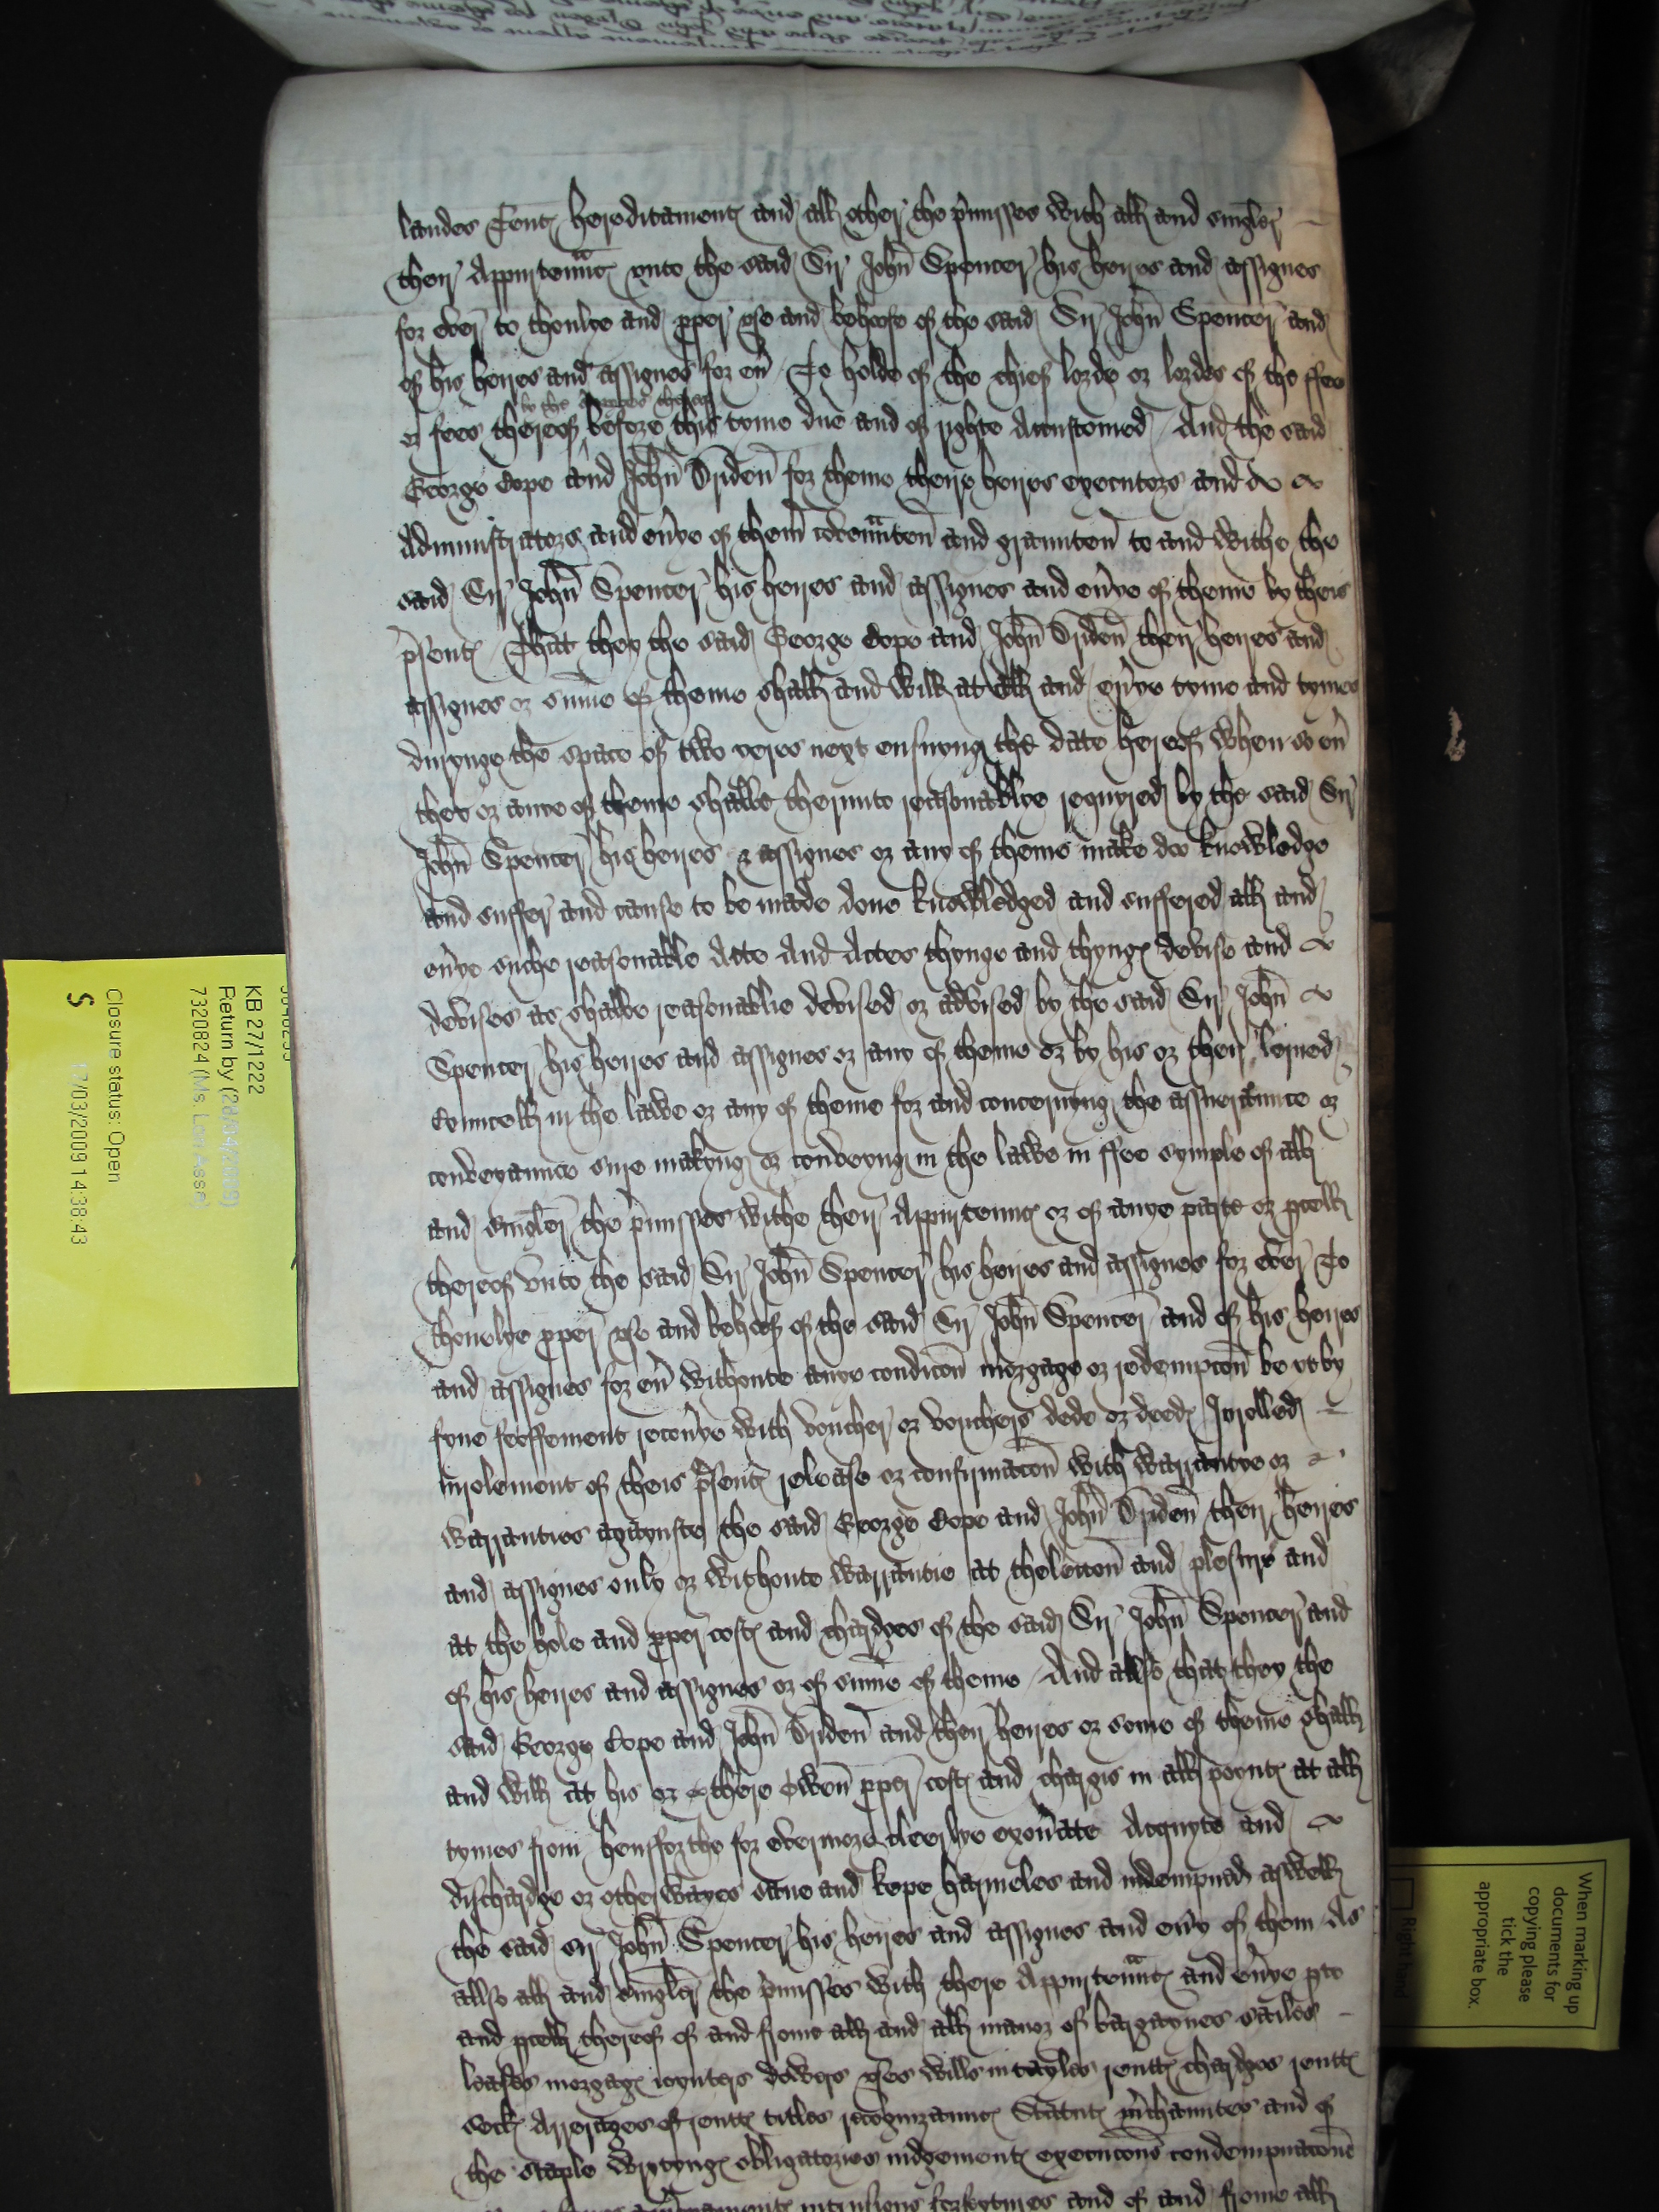 landes tent hereditament and all other the pmisses with all and singler
ther Appurtennc vnto the said Sir John Spencer his heires and assignes
for ever to thonlye and pper vse and behoofe of the said Sir John Spencer and
of his heires and assignes for eu To holde of the chief lorde or lordes of the ffee
by the
or fees therof before this tyme due and of righte Accustomed And the said
George Cope and John Driden for theme theire heires executors and
Administrators and eu'ye of them covennten and graunten to and withe the
said Sir John Spencer his heires and assignes and eu'ye of theme by theis
psent That they the said George Cope and John Driden ther heires and
assignes or sume of theme shall and will at all and eu'ye tyme and tymes
durynge the space of two yeres next ensuyng the date hereof when so eu
they or anye of theme shalbe therunto reasonablye requyred by the said Sir
John Spencer his heires & assignes or any of theme make doo knowledge
and suffer and cause to be made done knowledged and suffered all and
eu'ye suche reasonable Acte And Actes thynge and thyng devise and
devises as shalbe reasonablie devised or advised by the said Sir John
Spencer his heires and assignes or any of theme or by his or ther lerned
Councell in the lawe or any of theme for and concernyng the assueraunce or
conveyaunce sure makyng or conveyng in the lawe in ffee symple of all
and singler the pmisses withe ther Appurtennc or of anye parte or pcell
therof vnto the said Sir John Spencer his heires and assignes for ever To
thonelye pper vse and behoof of the said Sir John Spencer and of his heires
and assignes for eu withoute anye condicon morgage or redempcon be yt by
fyne feoffement recou'ye with voucher or vouchers dede or deed Inrolled
inrolement of theis psent release or confirmacon with warrantye or
warranties agaynste the said George Cope and John Driden ther heires
and assignes only or withoute warrantie at thelecon and plesure and
at the hole and pper cost and chardges of the said Sir John Spencer and
of his heires and assignes or of sume of theme And allso that they the
said George Cope and John Driden and ther heires or some of theme shall
and will at his or there owen pper cost and chargis in all poynt at all
tymes from hensforthe for evermore cleerlye exon'ate Acquyte and
dischardge or otherwayes saue and kepe harmeles and indempned aswell
the said Sir John Spencer his heires and assignes and eu'y of them As
allso all and singler the pmisses with there Appurtennc and eu'ye pte
and pcell therof of and frome all and all manor of bargaynes sailes
leases morgag ioynters dowers vses wills intayles rentt chardges rentt
seck Arrerages of rentt titles recognizaunc Statut m'chauntes and of
the staple wrytyng obligatories iudgement execucons condempnacons
intrusions forfeytures and of and frome all
KB 27/1222
Return by (28/04/2009)
7320824 (Ms. Lori Asse)
Closure status: Open
S
17/03/2009 14:38:43
When marking up
documents for
copying please
tick the
appropriate box.
Right hand